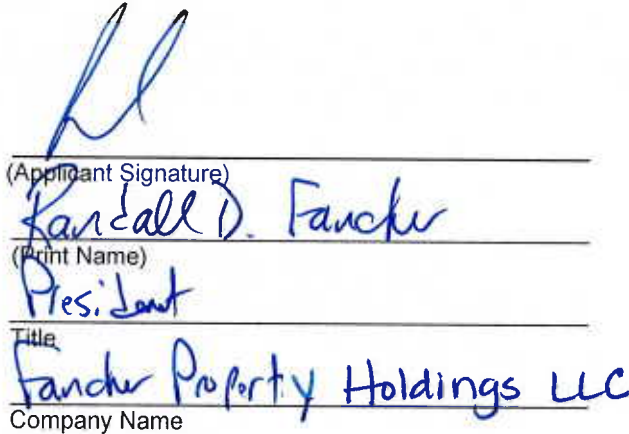 (Applicant Signature)
Randall D. Fancher
(Print Name)
President
Title
Fancher Property Holdings LLC
Company Name